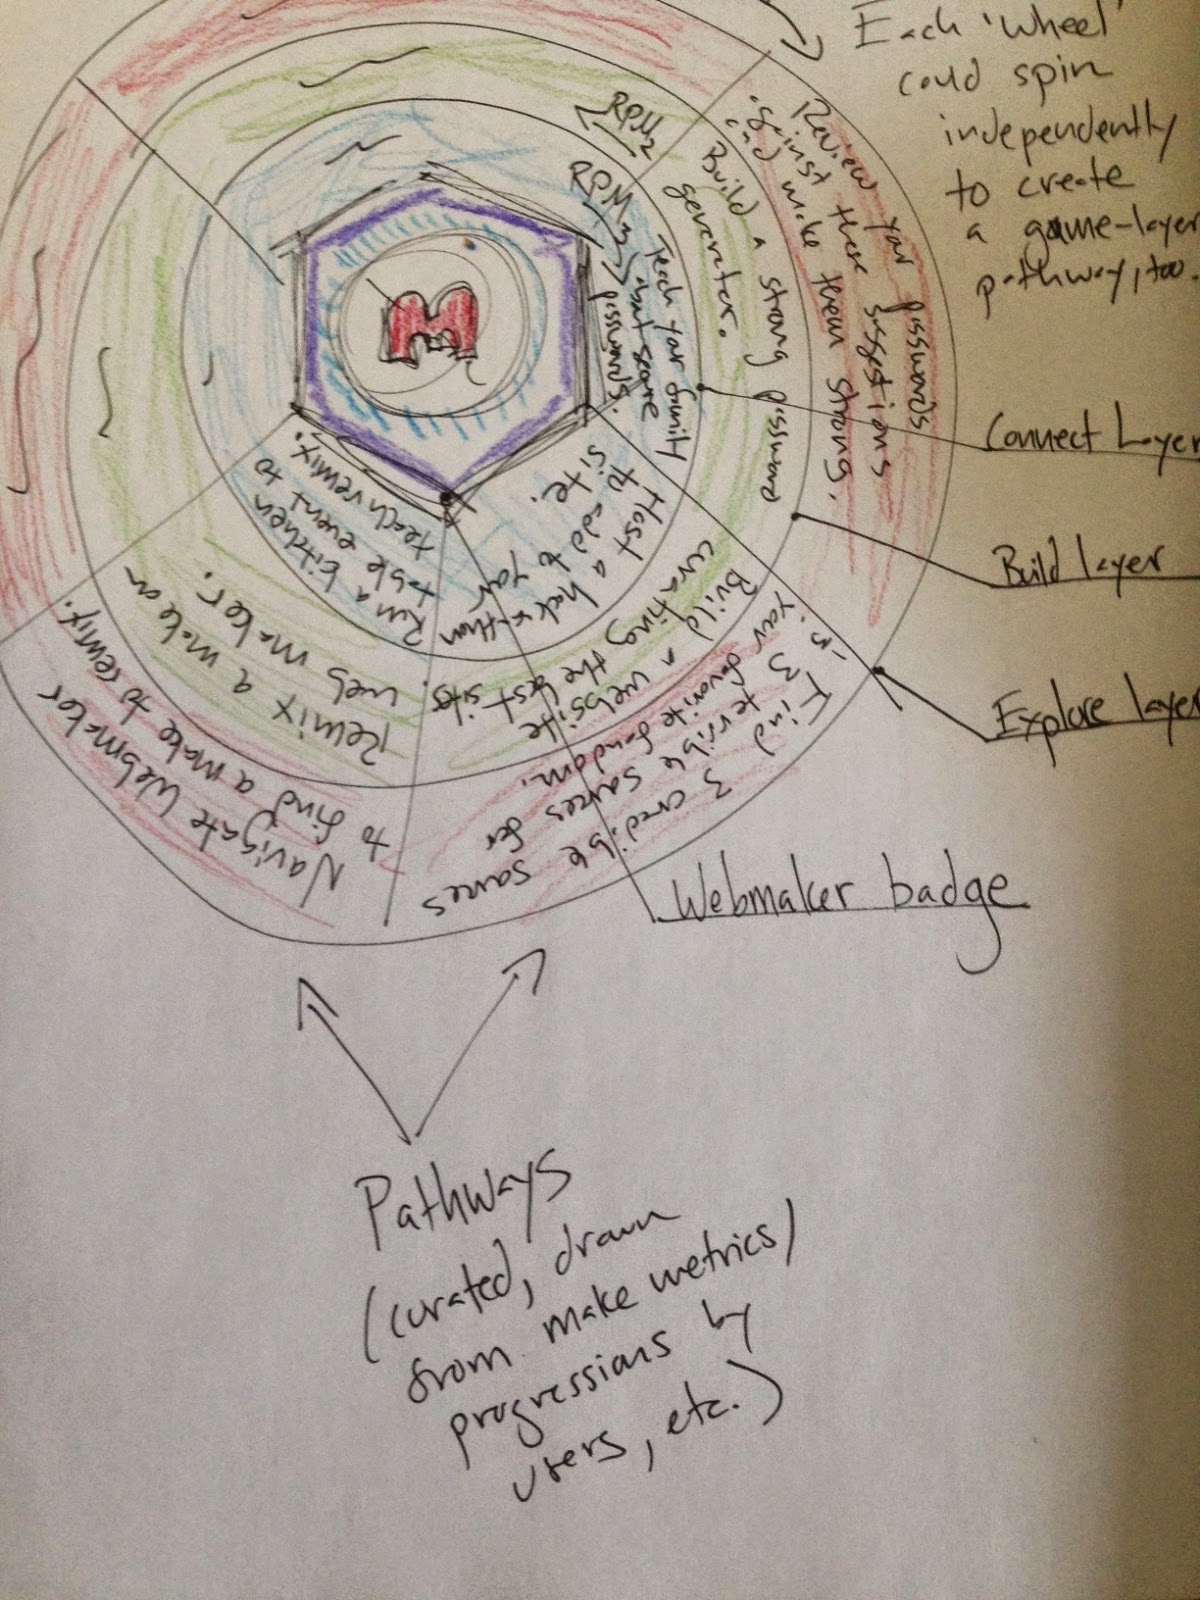 Each 'Wheel'
could spin
independently
to create
a game-layer
pathway, too.
RPM2
RPM3
Review your passwords
against these suggestions
and make them strong.
Build a strong password
generator.
Teach your family
about secure
passwords.
Connect Layer
Build layer
Explore layer
Host a hack-a-thon
to add to your
site.
Build a website
curating the best sites.
Find 3 credible sources
& 3 terrible sources for
your favorite fandom.
Run a kitchen
table event to
teach remix.
Remix a make on
web maker.
Navigate Webmaker
to find a make to remix.
M
Webmaker badge
Pathways
(curated, drawn
from make metrics/
progressions by
users, etc.)